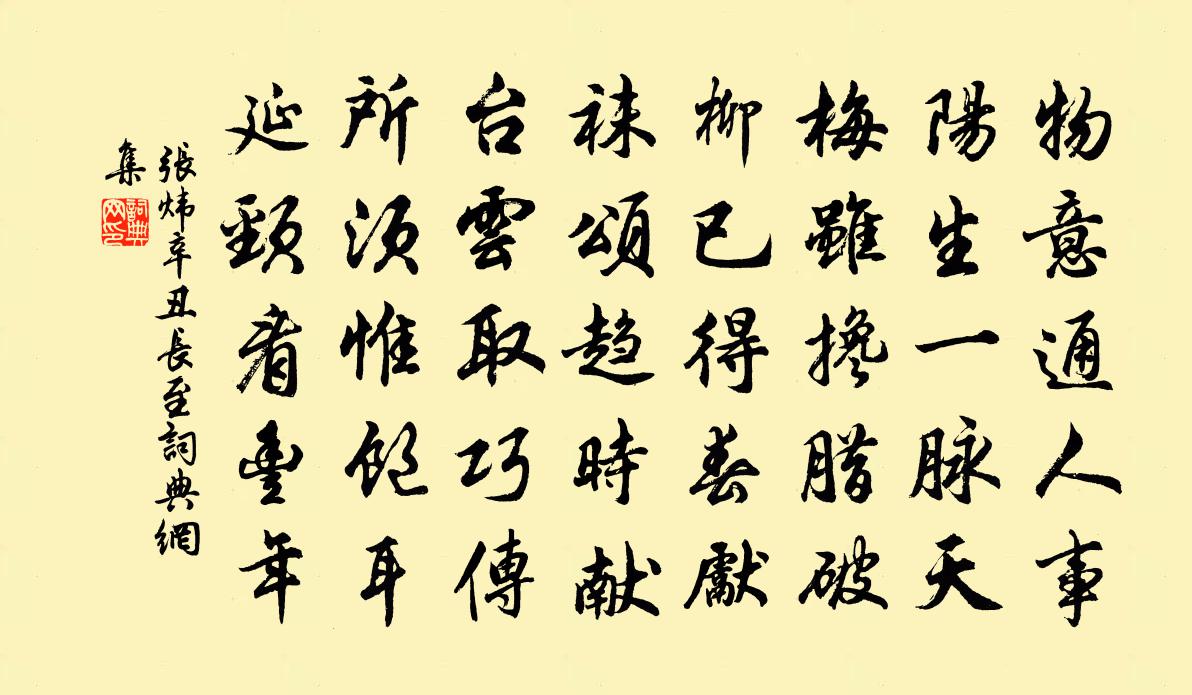 物意通人事
陽生一脉天
梅雖搀腊破
柳已得春獻
袜頌趋時献
台雲取巧傳
所須惟飽耳
延頸看豊年
張炜辛丑長至詞典網
集
詞典
网印